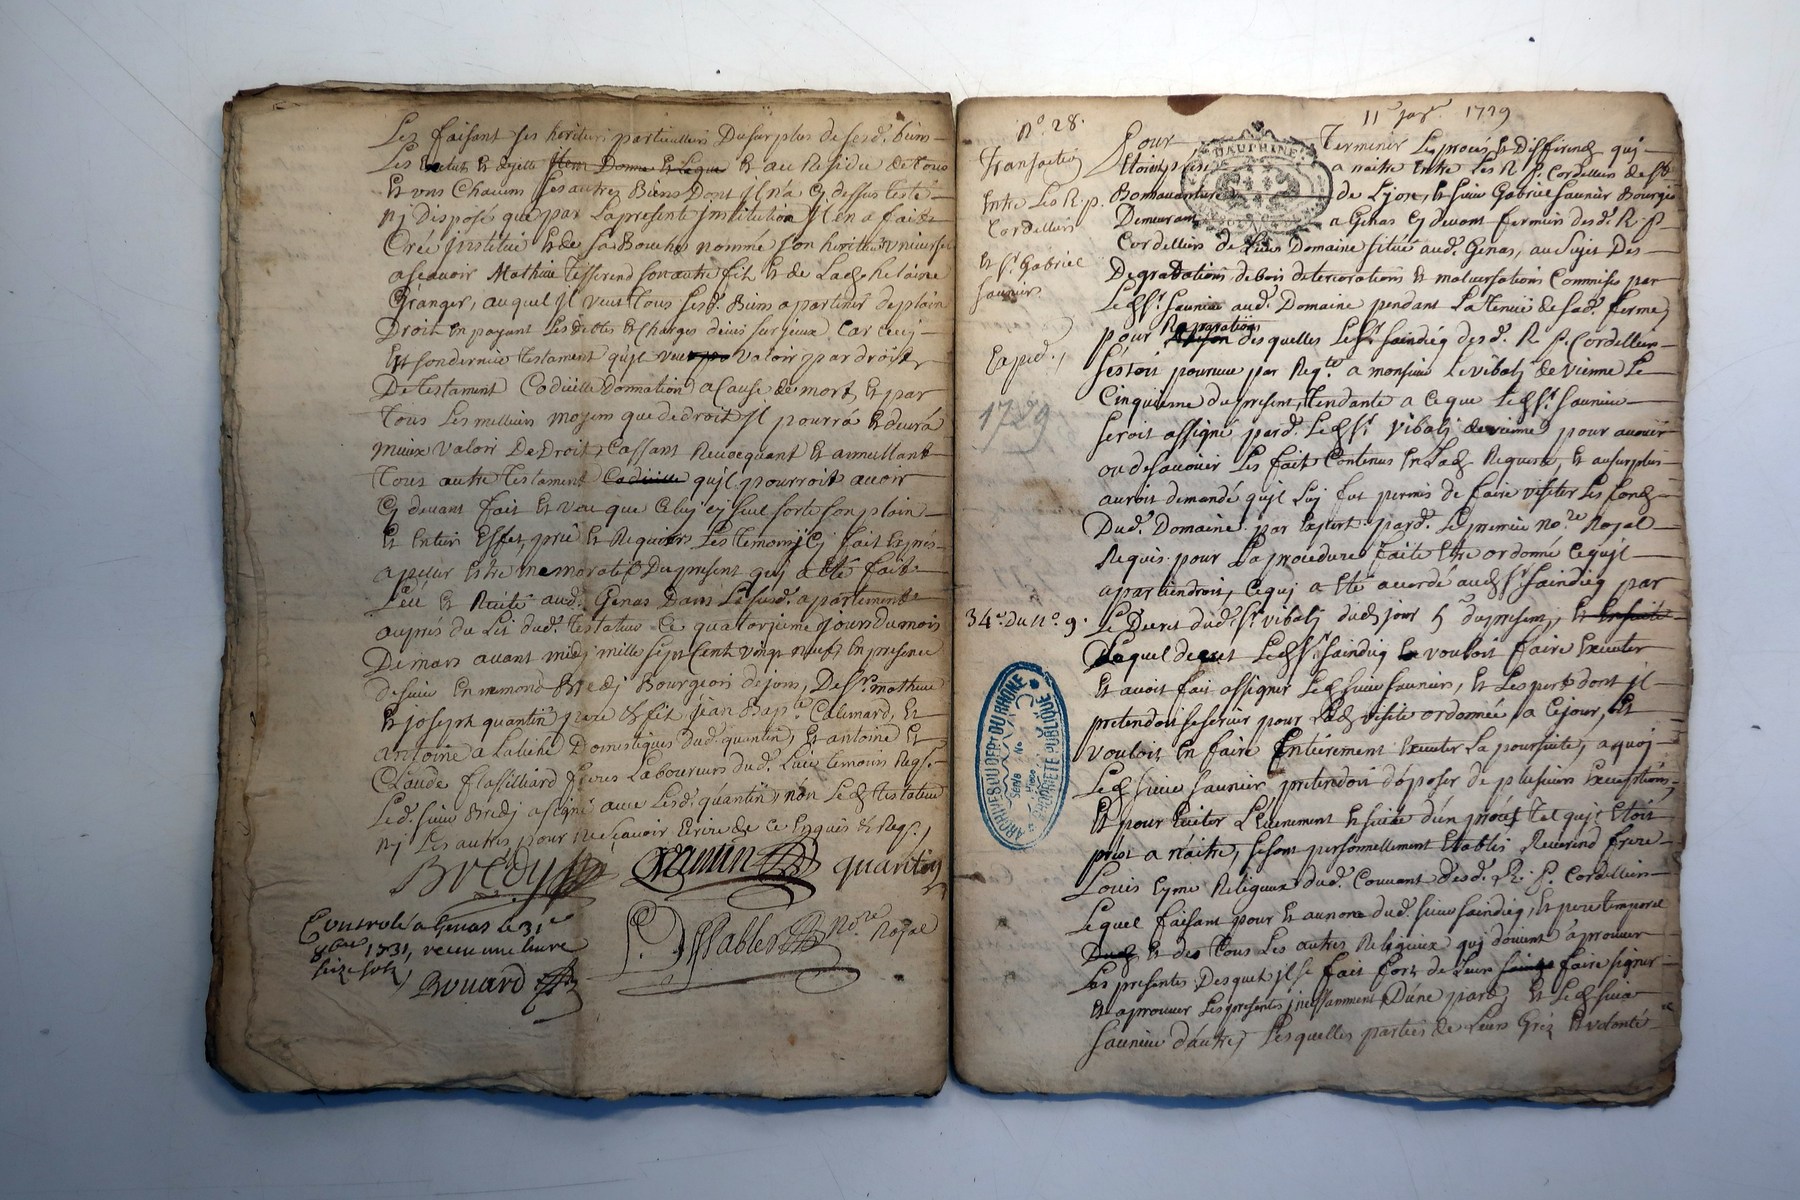 Les faisant ses heritiers particulliers Du surplus de sesd. biens
Les exclut et dejette Item Donne et Legue et au Residu de tous
et uns chacuns ses autres Biens Dont Il n'a cy dessus testé
ny Disposés que par La presente Institution Il en a fait
Créé institué et de sa Bouche nommé son heritier universel
asçavoir Mathieu Tisserend son autre fils et de Lad. Helaine
Granger, auquel il veut tous sesd. Biens apartenir de plain
Droit en payant Les debtes et charges deües sur jceux Car cecy
est son dernier testament qu'il veut valoir par droit
De testament Codicille Donnation a cause de mort, et par
tous Les meilleurs moyens que de droit il pourrá et deurá
mieux valoir De Droit, Cassant Revocquant et annullant
tous autre testament Codicille qu'il pourroit avoir
Cy devant fait et veut que Celuy cy seul sorte son plain
et entier Effet, prié et Requiers Les temoins cy fait exprés
apeller estre memoratif Du present qui a eté fait
Leu et Recité aud. Genas Dans Le susd. apartement
auprés du Lit dud. testateur Ce quatorzieme jour du mois
De mars avant midy mille sept cent vingt neuf, en presence
de sieur Enemond Bredy Bourgeois de
et joseph quantin pere et fils jean Bap.te Calemard, et
antoine Domestiques dud. quantin, et antoine et
Claude flassilliard freres Laboureurs dud. Lieu temoins Reqs.
Led. sieur Bredy a signé avec Lesd. quantin, non Led. testateur
ny Les autres pour ne sçavoir écrire de ce enquis et Reqs.
Bredy quantin quantin
L. Dessables No.re Royal
Controlé a Genas le 31e
8bre 1731, receu une livre
seize sols
Bouard
11e 1729
N.o 28.
Transaction
Entre Les R. p.
Cordelliers
et s.r Gabriel
saunier
Exped.
1729
34e. Du N.o 9.
DAUPHINE
Pour Terminer Le procés et Differend qui
Etoient prests a naitre entre Les R. P. Cordelliers de St
Bonnavanture de Lyon, et sieur Gabriel saunier Bourgeois
Demeurant a Genas cy devant fermier desd. R. P.
Cordelliers de Leur Domaine situé aud. Genas, au sujet Des
Degradations de bois deteriorations et malversations Commises par
Led. Sr. saunier aud. Domaine pendant La tenüe de sad. ferme
pour Reparations desquelles Le sr. saindig desd. R. P. Cordelliers
s'estoit pourveu par Reqte. a monsieur Le vibaly de vienne Le
Cinquieme du present, tendante a ce que Led. Sr. saunier
seroit assigné pard. Led. Sr. Vibaly de vienne pour avouer
ou desavoüer Les fait contenus en Lad. Requete, et au surplus
auroit demandé qu'il Luy fut permis de faire visiter Les fonds
Dud. Domaine par Expert pard. Le premier no.re Royal
Requis pour La procedure faite etre ordonné ce qu'il
apartiendroit, ce qui a eté acordé aud. Sr. saindig par
Le Decret dud. Sr. vibaly dud. jour 5e du present, et Ensuite
Duquel decret Led. Sr. saindig vouloit faire Executer
et avoit fait assigner Led. sieur saunier, et Lespert dont il
pretendoit se servir pour Lad. visite ordonnée a ce jour, et
vouloit en faire Entierement Executer La poursuite, a quoy
Led. sieur saunier pretendoit d'oposer de plusieurs Exceptions,
et pour Eviter L'Evenement en suite d'un procés tel qu'il Etoit
prest a náitre, se sont personnellement Etablis Reverend frere
Louis Eyme Religieux dud. Couvant desd. R. P. Cordelliers
Lequel faisant pour et au nom dud. sieur saindig, et pere temporel
Dud. et des tous Les autres Religieux qui doivent aprouver
Les presentes, Desquels il se fait fort, de Leur faire signer
et aprouver Les presentes jncessamment D'une part, et Led. sieur
saunier d'autre, Lesquelles parties de Leurs Gréz et volonté
ARCHIVES DU DEPT DU RHONE
Série No
Pièce
PROPRIETE PUBLIQUE